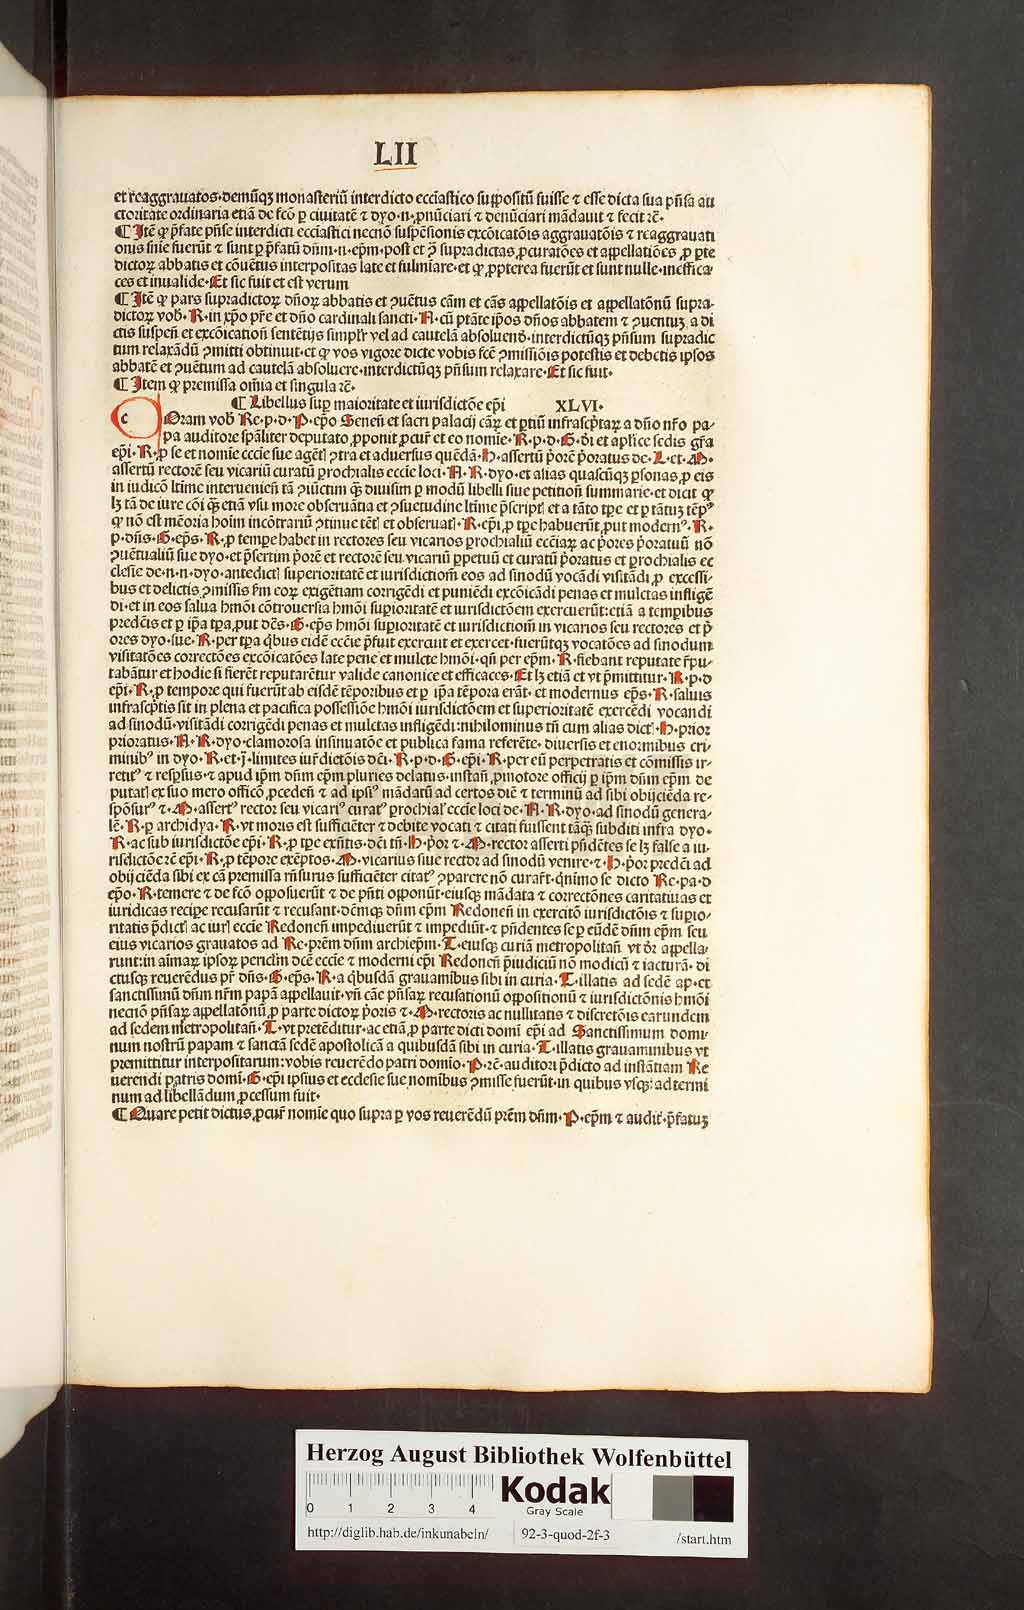 LII
et reaggrauatos·demũqꝫ monasteriũ interdicto ecciastico suppositũ fuisse ⁊ esse dicta sua pñsa au
ctoritate ordinaria etiã de fcõ ꝑ ciuitatẽ ⁊ dyo·n·pnũciari ⁊ denũciari mãdauit ⁊ fecit rẽ·
¶ Itẽ ꝙ pfate pñse interdicti ecciastici necnõ suspẽsionis excõicatõis aggrauatõis ⁊ reaggrauati
onis snie fuerũt ⁊ sunt ꝑ pfatũ dñm·n·epm·post et ꝯ supradictas ꝓcuratões et appellatiões ꝓ pte
dictoꝝ abbatis et cõuẽtus interpositas late et fulmiare·et ꝙ ꝓpterea fuerũt et sunt nulle·ineffica-
ces et inualide·Et sic fuit et est verum
¶ Itẽ ꝙ pars supradictoꝝ dñoꝝ abbatis et ꝯuẽtus cãm et cãs appellatõis et appellatõnũ supra-
dictoꝝ vob̃·R·in xp̃o pr̃e et dño cardinali sancti·A·cũ ptãte ip̃os dños abbatem ⁊ ꝯuentuꝫ a di
ctis suspeñ et excõication̄ sentẽtijs simplr̃ vel ad cautelã absoluend̃·interdictũqꝫ pñsum supradic
tum relaxãdũ ꝯmitti obtinuit·et ꝙ vos vigore dicte vobis fcẽ ꝯmissiõis potestis et debetis ipsos
abbatẽ et ꝯuẽtum ad cautelã absoluere·interdictũqꝫ pñsum relaxare·Et sic fuit·
¶ Item ꝙ premissa om̃ia et singula rẽ·
¶ Libellus sup maioritate et iurisdictõe ep̃i XLVI·
cOram vob̃ Re·p·d·P·ep̃o Seneñ et sacri palacij cãꝝ et ꝑtiũ infrascp̃taꝝ a dño nr̃o pa-
pa auditore sp̃aliter deputato ꝓponit ꝓcur̃ et eo nomie·R·p·d·G·d̃i et aplice sedis gr̃a
ep̃i·R·ꝓ se et nomie eccie sue agẽt ꝯtra et aduersus quẽdã·H·assertũ p̃orẽ p̃oratus de·L·et·M·
assertũ rectorẽ seu vicariũ curatũ prochialis eccie loci·N·R·dyo·et alias quascũqꝫ psonas ꝓ eis
in iudicõ ltĩme interuenieñ tã ꝯiũctim ꝙ̃ diuisim ꝑ modũ libelli siue petitioñ summarie·et dicit ꝙ
lꝫ tã de iure cõi ꝙ̃ etiã vsu more obseruãtia et ꝯsuetudine ltĩme p̃script et a tãto tp̃e et ꝑ tãtuꝫ tẽpꝰ
ꝙ nõ est mẽoria hoim incõtrariũ ꝯtinue tẽt et obseruat·R·ep̃i ꝓ tp̃e habuerũt put modernꝰ·R·
p·dñs·G·ep̃s·R·ꝓ tempe habet in rectores seu vicarios prochialiũ ecciaꝝ ac p̃ores p̃oratuũ nõ
ꝯuẽtualiũ sue dyo·et p̃sertim p̃orẽ et rectorẽ seu vicariũ ppetuũ et curatũ p̃oratus et prochialis ec
clesie de·n·n·dyo·antedict superioritatẽ et iurisdictioñ eos ad sinodũ vocãdi visitãdi ꝓ excessi-
bus et delictis ꝯmissis fm eoꝝ exigẽtiam corrigẽdi et puniẽdi excõicãdi penas et mulctas infligẽ
di·et in eos salua hmõi cõtrouersia hmõi sup̃ioritatẽ et iurisdictõem exercuerũt:etiã a tempibus
predc̃is et ꝑ ip̃a tp̃a put dc̃s·G·ep̃s hmõi sup̃ioritatẽ et iurisdictioñ in vicarios seu rectores et p̃
ores dyo·sue·R·per tp̃a q̃bus eidẽ eccie p̃fuit exercuit et exercet·fuerũtqꝫ vocatões ad sinodum
visitatões correctões excõicatões late pene et mulcte hmõi·qñ per ep̃m·R·fiebant reputate r̃pu-
tabãtur et hodie si fierẽt reputarẽtur valide canonice et efficaces·Et lꝫ etiã et vt p̃mittitur·R·p·d
ep̃i·R·ꝓ tempore qui fuerũt ab eisdẽ tẽporibus et ꝑ ip̃a tẽpora erãt·et modernus ep̃s·R·saluis
infrascp̃tis sit in plena et pacifica possessiõe hmõi iurisdictõem et superioritatẽ exercẽdi vocandi
ad sinodũ·visitãdi corrigẽdi penas et mulctas infligẽdi:nihilominus tñ cum alias dict·H·prior
prioratus·N·R·dyo·clamorosa insinuatõe et publica fama referẽte·diuersis et enormibus cri-
minibꝰ in dyo·R·et·j·limites iur̃dictõis dc̃i·R·p·d·G·ep̃i·R·per eũ perpetratis et cõmissis ir-
retitꝰ ⁊ respsus·⁊ apud ip̃m dñm ep̃m pluries delatus·instañ ꝓmotore officij ꝑ ip̃m dñm ep̃m de
putat ex suo mero officõ ꝓcedeñ ⁊ ad ipsiꝰ mãdatũ ad certos diẽ ⁊ terminũ ad sibi obijciẽda re-
spõsurꝰ ⁊·M·assertꝰ rector seu vicariꝰ curatꝰ prochial eccie loci de·N·R·dyo·ad sinodũ genera-
lẽ·R·ꝑ archidya·R·vt moris est sufficiẽter ⁊ debite vocati ⁊ citati fuissent tãꝙ subditi infra dyo·
R·ac sub iurisdictõe ep̃i·R·ꝓ tp̃e exñtis·dc̃i tñ·H·p̃or ⁊·M·rector asserti pñdẽtes se lꝫ false a iu-
risdictõe rẽ ep̃i·R·ꝓ tẽpore exẽptos·M·vicarius siue rector ad sinodũ venire·⁊·H·p̃or predc̃i ad
obijciẽda sibi ex cã premissa m̃surus sufficiẽter citatꝰ ꝯparere nõ curar̃t·q̃nimo se dicto Re·pa·d
ep̃o·R·temere ⁊ de fcõ opposuerũt ⁊ de p̃nti opponũt·eiusqꝫ mãdata ⁊ correctões caritatiuas et
iuridicas recipe recusarũt ⁊ recusant·dc̃mqꝫ dñm ep̃m Redoneñ in exercitõ iurisdictõis ⁊ sup̃io-
ritatis p̃dict ac iur eccie Redoneñ impediuerũt ⁊ impediũt·⁊ pñdentes se ꝑ eũdẽ dñm ep̃m seu
eius vicarios grauatos ad Re·prẽm dñm archiep̃m·T·eiusqꝫ curiã metropolitañ vt dr̃ appella-
runt:in aĩmaꝝ ipsoꝝ periclm dc̃ẽ eccie ⁊ moderni ep̃i Redoneñ p̃iudiciũ nõ modicũ ⁊ iacturã·di
ctusqꝫ reuerẽdus pr̃ dñs·G·ep̃s·R·a q̃busdã grauamibus sibi in curia·T·illatis ad sedẽ ap·et
sanctissimũ dñm nr̃m papã appellauit·vñ cãe pñsaꝝ recusationũ oppositionũ ⁊ iurisdictõnis hmõi
necnõ pñsaꝝ appellatõnũ ꝓ parte dictoꝝ p̃oris ⁊·M·rectoris ac nullitatis ⁊ discretõis earundem
ad sedem metropolitañ·T·vt pretẽditur·ac etiã ꝓ parte dicti domi ep̃i ad Sanctissimum domi-
num nostrũ papam ⁊ sanctã sedẽ apostolicã a quibusdã sibi in curia·T·illatis grauaminibus vt
premittitur interpositarum:vobis reuerẽdo patri domio·P·rẽ·auditori p̃dicto ad instãtiam Re
uerendi patris domi·G·ep̃i ipsius et ecclesie sue nomibus ꝯmisse fuerũt·in quibus vsqꝫ ad termi
num ad libellãdum ꝓcessum fuit·
¶ Quare petit dictus ꝓcur̃ nomie quo supra ꝑ vos reuerẽdũ prẽm dñm·P·ep̃m ⁊ audir̃·p̃fatuꝫ
Herzog August Bibliothek Wolfenbüttel
0 1 2 3 4
Kodak
Gray Scale
http://diglib.hab.de/inkunabeln/ 92-3-quod-2f-3 /start.htm